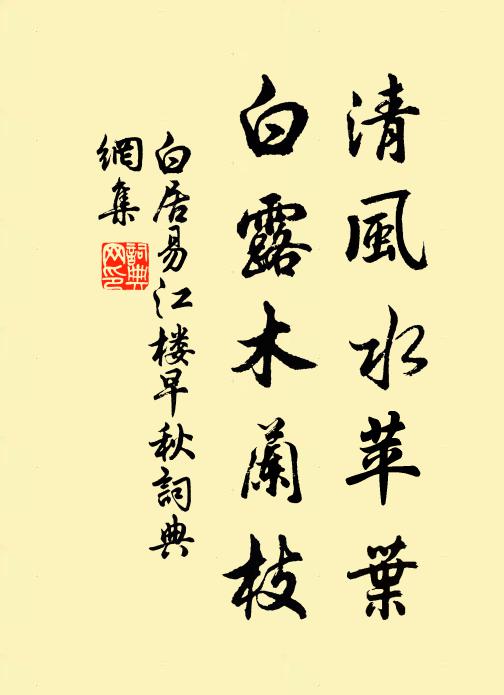 清風水苹葉
白露木蘭枝
白居易江楼早秋詞典
網集
詞典
网印